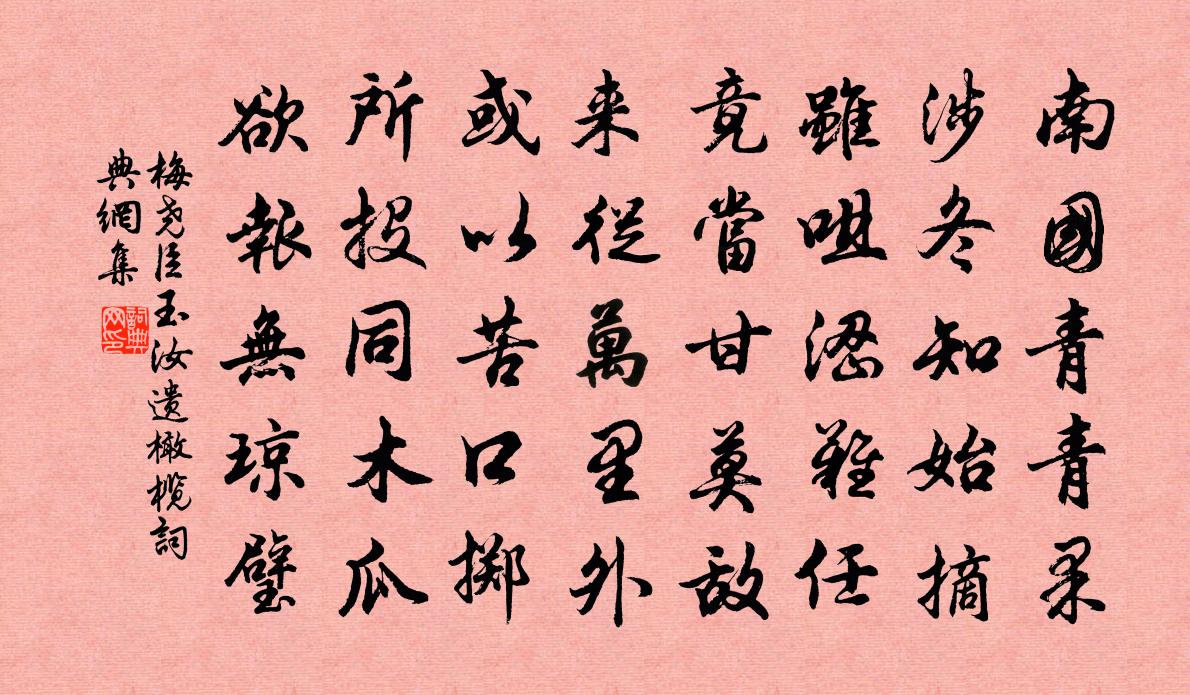 南國青青果
涉冬知始摘
雖咀涩難任
竟當甘莫敌
来從萬里外
或以苦口掷
所投同木瓜
欲報無琼璧
梅尧臣玉汝遗橄榄詞
典網集
詞典网印